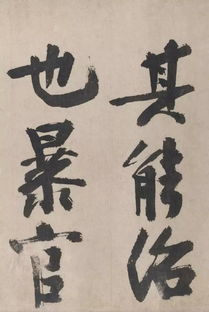 其能治
也暴官